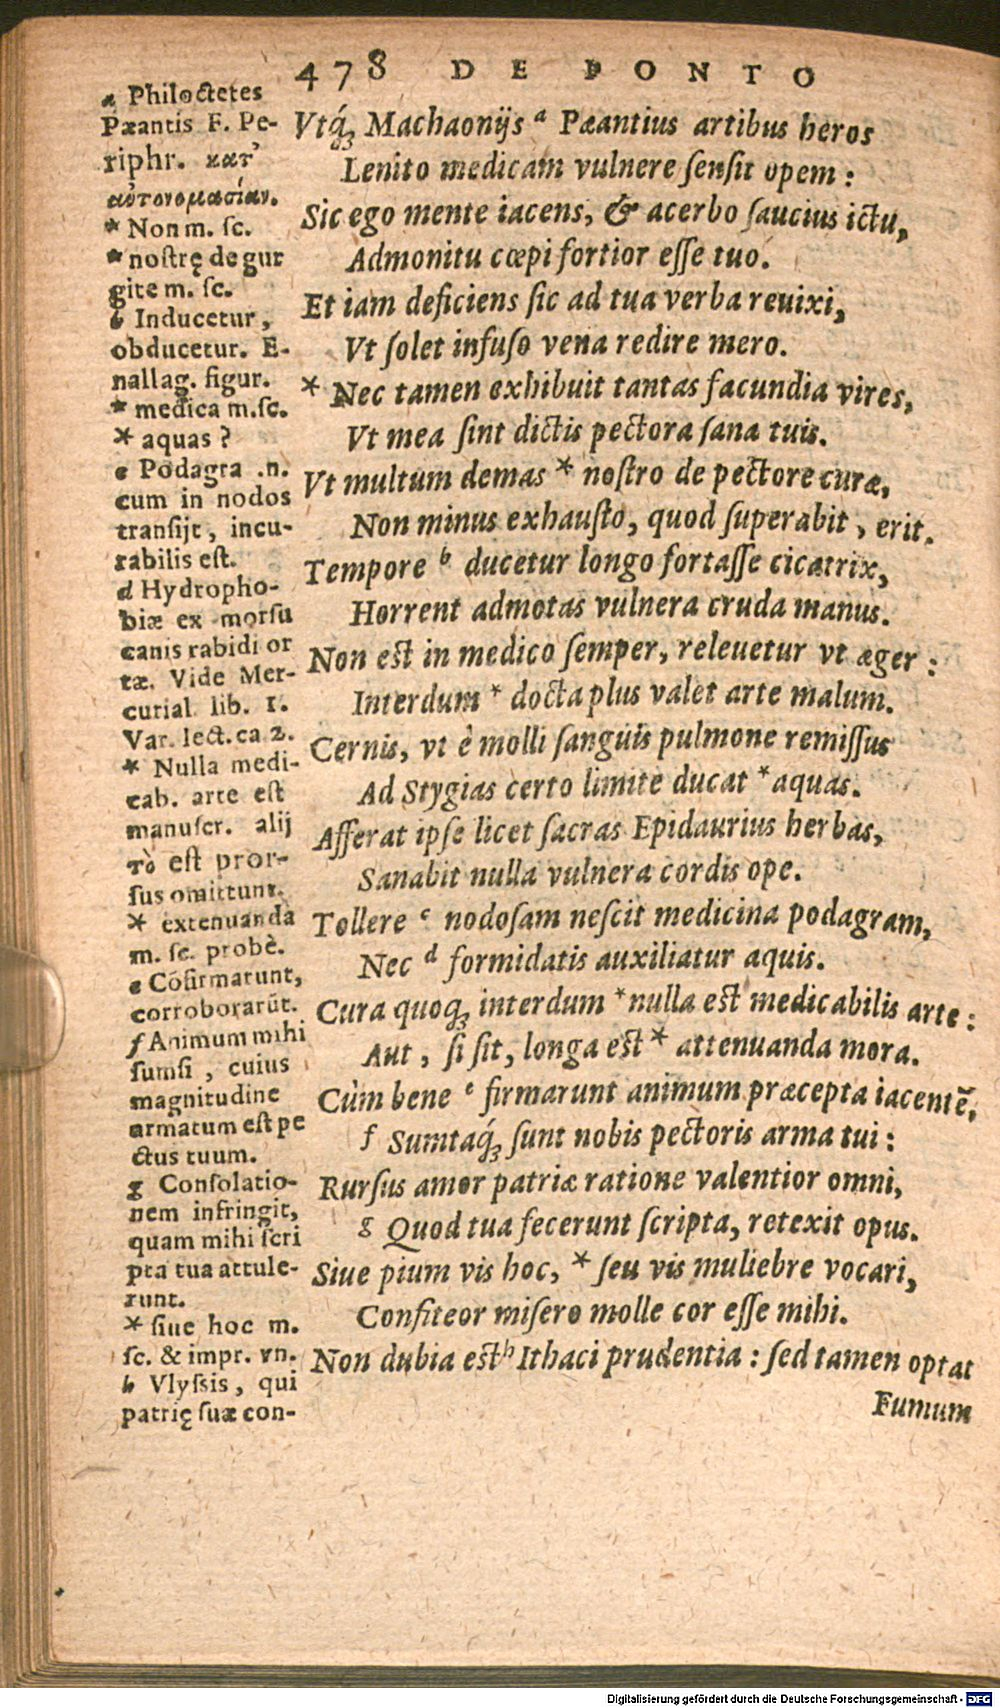 478 DE PONTO
a Philoctetes
Pæantis F. Pe-
riphr. κατ’
αὐτονομασίαν.
* Non m. sc.
* nostrę de gur
gite m. sc.
b Inducetur,
obducetur. E-
nallag. figur.
* medica m. sc.
* aquas?
c Podagra .n.
cum in nodos
transijt, incu-
rabilis est.
d Hydropho-
biæ ex morsu
canis rabidi or
tæ. Vide Mer-
curial lib. 1.
Var. lect. ca 2.
* Nulla medi-
cab. arte est
manuscr. alij
τὸ est pror-
sus omittunt.
* extenuanda
m. sc. probè.
e Cōfirmarunt,
corroborarūt.
f Animum mihi
sumsi, cuius
magnitudine
armatum est pe
ctus tuum.
g Consolatio-
nem infringit,
quam mihi scri
pta tua attule-
runt.
* siue hoc m.
sc. & impr. vn.
h Vlyssis, qui
patrię suæ con-
Vtq́ꝫ Machaonijs a Pæantius artibus heros
Lenito medicam vulnere sensit opem:
Sic ego mente iacens, & acerbo saucius ictu,
Admonitu cœpi fortior esse tuo.
Et iam deficiens sic ad tua verba reuixi,
Vt solet infuso vena redire mero.
* Nec tamen exhibuit tantas facundia vires,
Vt mea sint dictis pectora sana tuis.
Vt multum demas * nostro de pectore curæ,
Non minus exhausto, quod superabit, erit.
Tempore b ducetur longo fortasse cicatrix,
Horrent admotas vulnera cruda manus.
Non est in medico semper, releuetur vt æger:
Interdum * docta plus valet arte malum.
Cernis, vt è molli sanguis pulmone remissus
Ad Stygias certo limite ducat * aquas.
Afferat ipse licet sacras Epidaurius herbas,
Sanabit nulla vulnera cordis ope.
Tollere c nodosam nescit medicina podagram,
Nec d formidatis auxiliatur aquis.
Cura quoqꝫ interdum * nulla est medicabilis arte:
Aut, si sit, longa est * attenuanda mora.
Cùm bene e firmarunt animum præcepta iacentē,
f Sumtaq́ꝫ sunt nobis pectoris arma tui:
Rursus amor patriæ ratione valentior omni,
g Quod tua fecerunt scripta, retexit opus.
Siue pium vis hoc, * seu vis muliebre vocari,
Confiteor misero molle cor esse mihi.
Non dubia est h Ithaci prudentia: sed tamen optat
Fumum
Digitalisierung gefördert durch die Deutsche Forschungsgemeinschaft - DFG